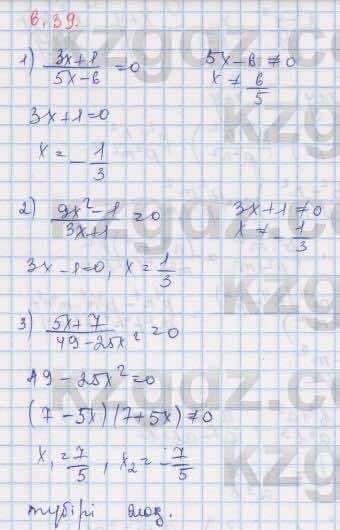 6.39.
1) (3x+1)/(5x-6) = 0    5x-6 ≠ 0
3x+1=0    x ≠ 6/5
x = -1/3
2) (9x²-1)/(3x+1) = 0    3x+1 ≠ 0
3x-1=0, x = 1/3    x ≠ -1/3
3) (5x+7)/(49-25x²) = 0
49-25x²=0
(7-5x)(7+5x)≠0
x₁ = 7/5, x₂ = -7/5
түбірі жоқ.
kzgdz.com